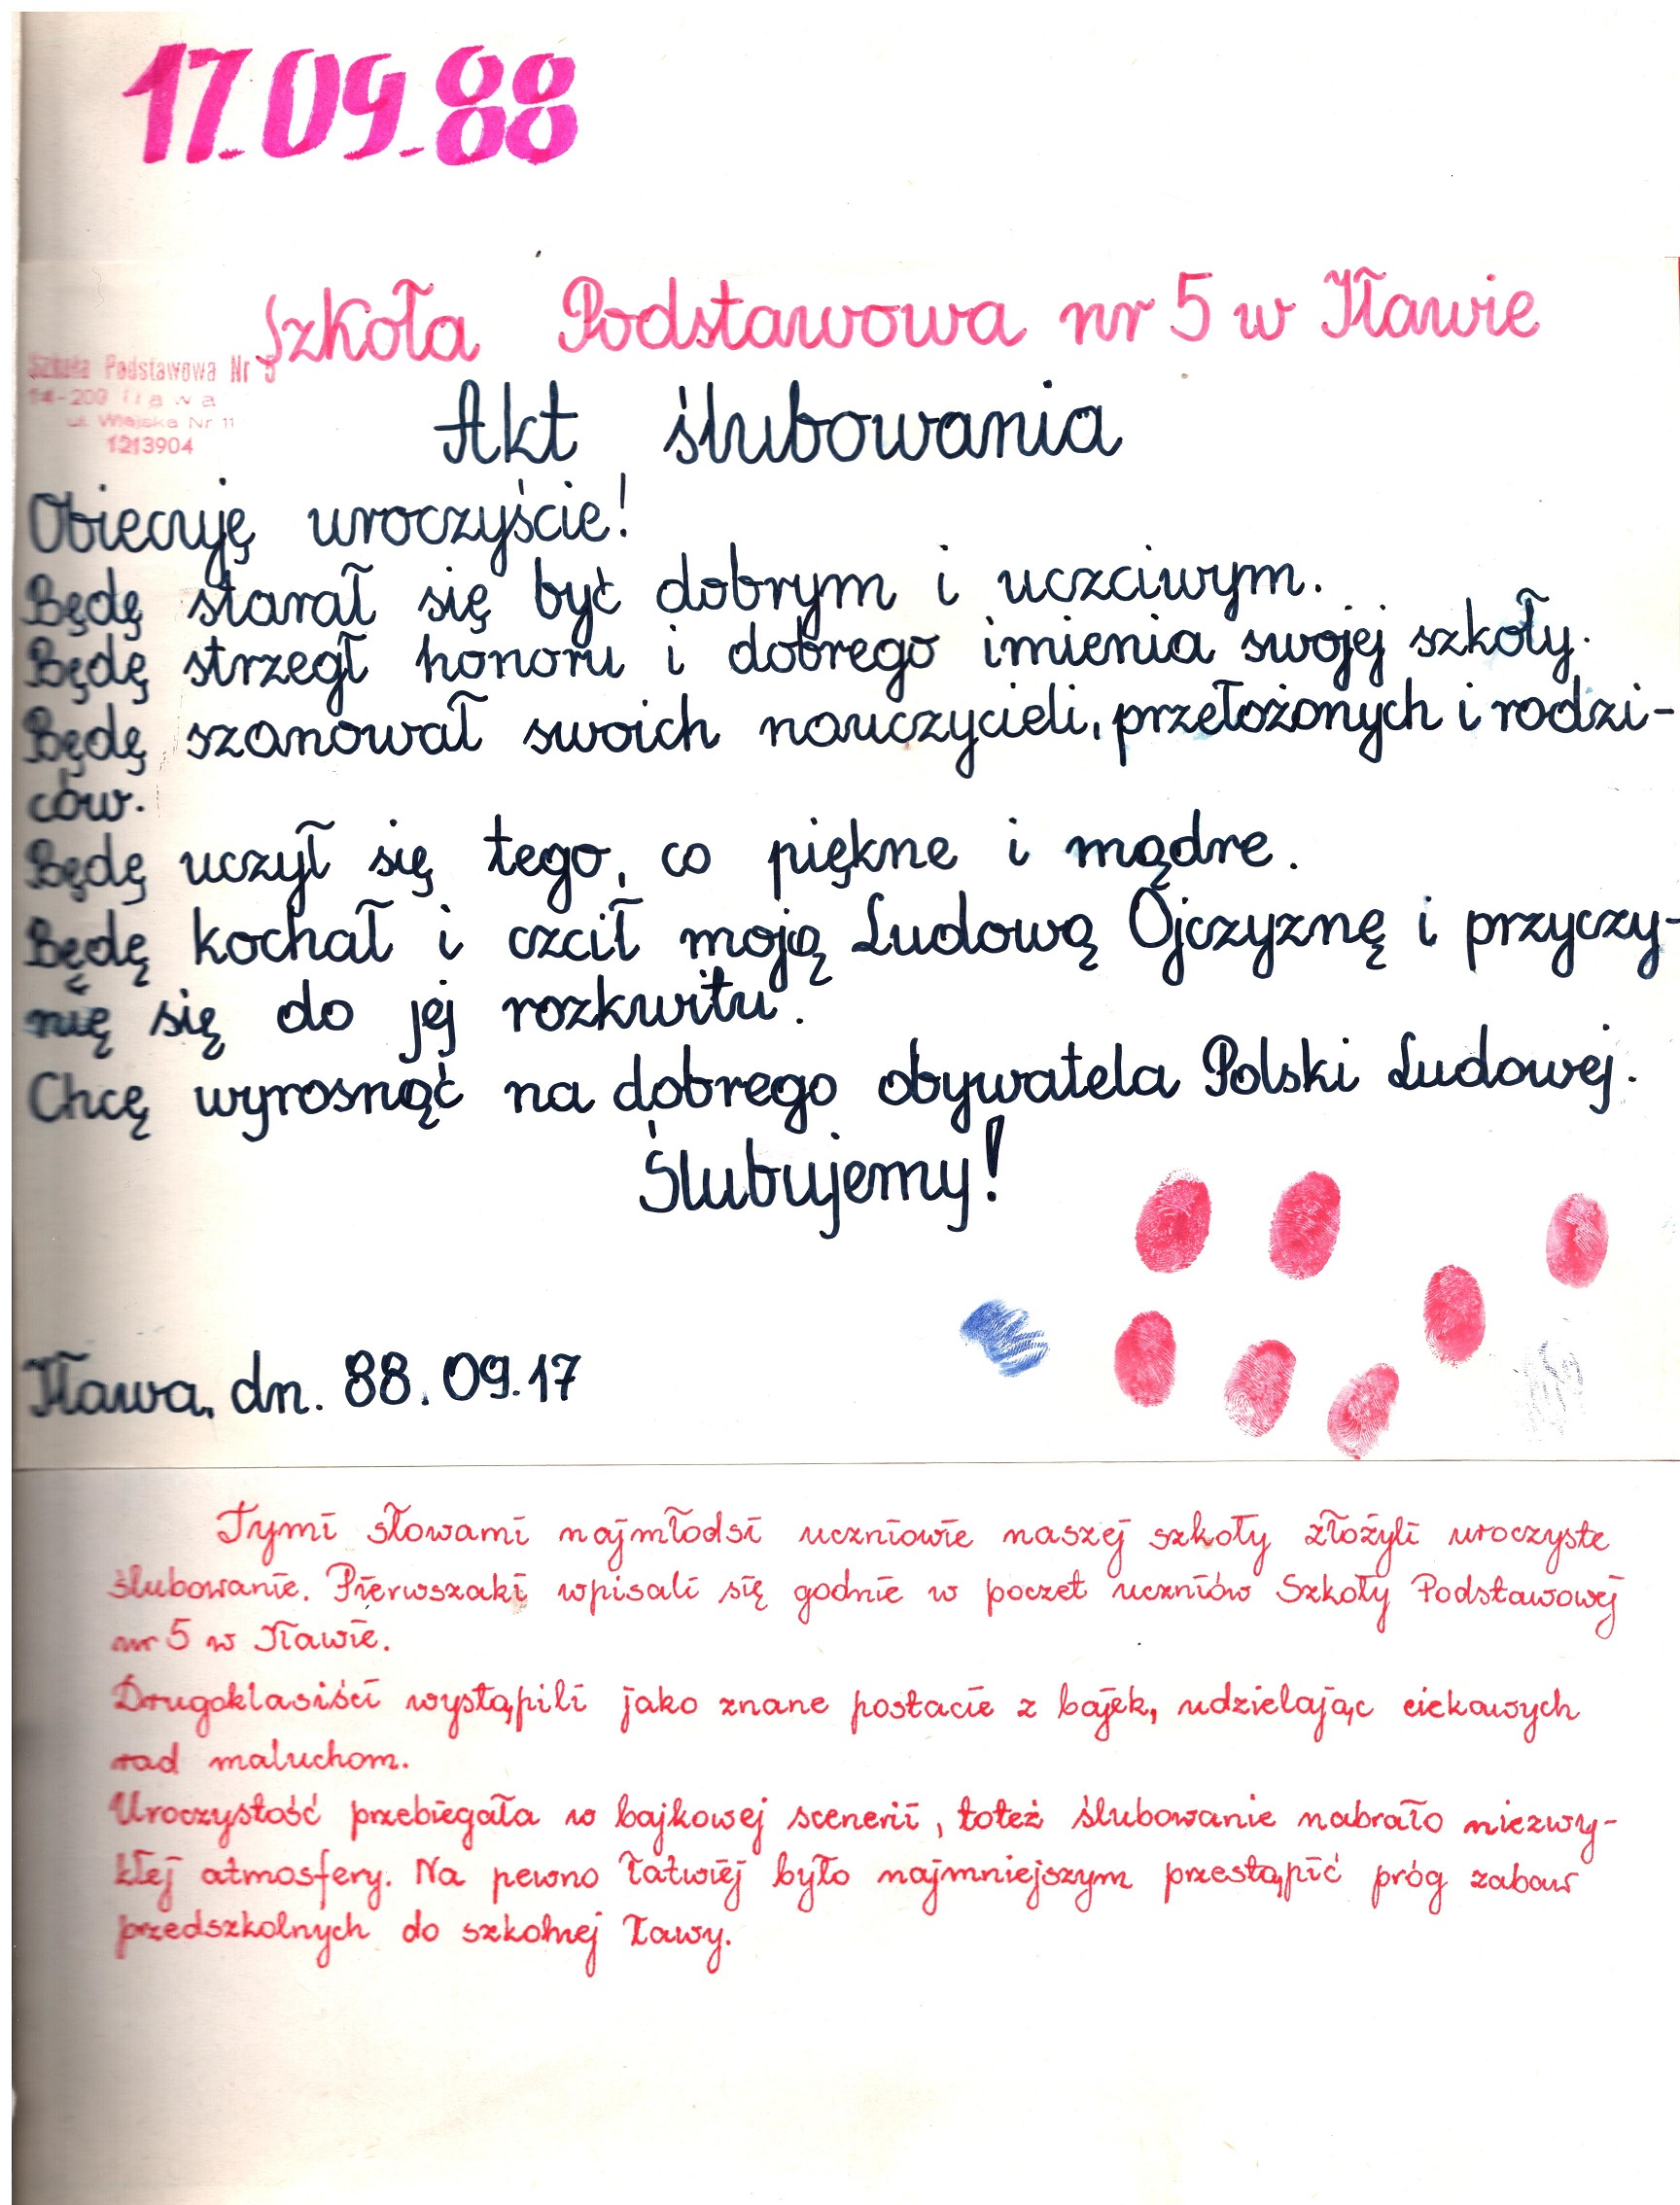 17.09.88
Szkoła Podstawowa nr 5 w Iławie
Szkoła Podstawowa Nr 5
14-200 Iława
ul. Wiejska Nr 11
1213904
Akt ślubowania
Obiecuję uroczyście!
Będę starał się być dobrym i uczciwym.
Będę strzegł honoru i dobrego imienia swojej szkoły.
Będę szanował swoich nauczycieli, przełożonych i rodzi-
ców.
Będę uczył się tego, co piękne i mądre.
Będę kochał i czcił moją Ludową Ojczyznę i przyczy-
nię się do jej rozkwitu.
Chcę wyrosnąć na dobrego obywatela Polski Ludowej.
Ślubujemy!
Iława, dn. 88.09.17
Tymi słowami najmłodsi uczniowie naszej szkoły złożyli uroczyste
ślubowanie. Pierwszaki wpisali się godnie w poczet uczniów Szkoły Podstawowej
nr 5 w Iławie.
Drugoklasiści wystąpili jako znane postacie z bajek, udzielając ciekawych
rad maluchom.
Uroczystość przebiegała w bajkowej scenerii, toteż ślubowanie nabrało niezwy-
kłej atmosfery. Na pewno łatwiej było najmniejszym przestąpić próg zabaw
przedszkolnych do szkolnej ławy.